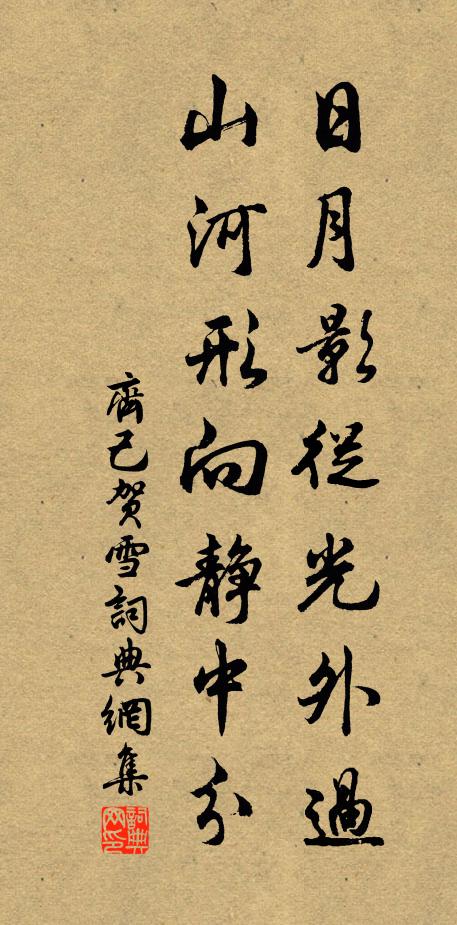 日月影從光外過
山河形向靜中分
齊己賀雪詞典網集
詞典網印